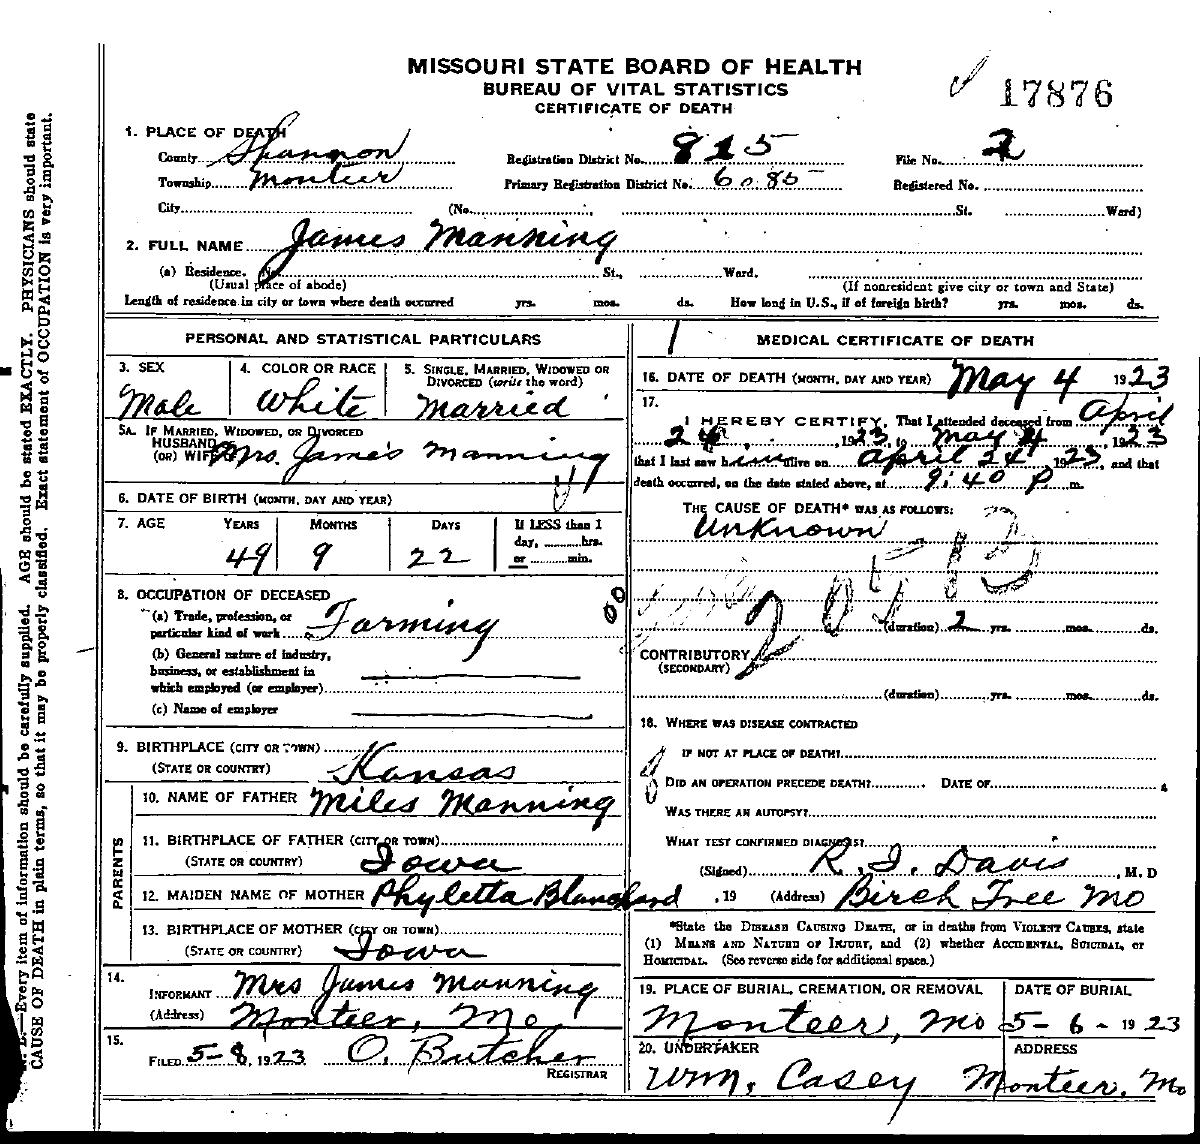 MISSOURI STATE BOARD OF HEALTH
BUREAU OF VITAL STATISTICS
CERTIFICATE OF DEATH
17876
1. PLACE OF DEATH
County Shannon Registration District No. 815 File No. 2
Township Monteer Primary Registration District No. 6085 Registered No.
City (No. , St. Ward)
2. FULL NAME James Manning
(a) Residence. No. St., Ward.
(Usual place of abode) (If nonresident give city or town and State)
Length of residence in city or town where death occurred yrs. mos. ds. How long in U.S., if of foreign birth? yrs. mos. ds.
PERSONAL AND STATISTICAL PARTICULARS
3. SEX 4. COLOR OR RACE 5. SINGLE, MARRIED, WIDOWED OR
DIVORCED (write the word)
Male White Married
5A. IF MARRIED, WIDOWED, OR DIVORCED
HUSBAND
(OR) WIFE Mrs. James Manning
6. DATE OF BIRTH (MONTH, DAY AND YEAR)
7. AGE YEARS MONTHS DAYS If LESS than 1
day, hrs.
or min.
49 9 22
8. OCCUPATION OF DECEASED
(a) Trade, profession, or
particular kind of work Farming
(b) General nature of industry,
business, or establishment in
which employed (or employer)
(c) Name of employer
9. BIRTHPLACE (CITY OR TOWN)
(STATE OR COUNTRY) Kansas
PARENTS
10. NAME OF FATHER Miles Manning
11. BIRTHPLACE OF FATHER (CITY OR TOWN)
(STATE OR COUNTRY) Iowa
12. MAIDEN NAME OF MOTHER Phyletta Blanchard
13. BIRTHPLACE OF MOTHER (CITY OR TOWN)
(STATE OR COUNTRY) Iowa
14.
INFORMANT Mrs James Manning
(Address) Monteer, Mo
15.
FILED 5-8, 1923 O. Butcher
REGISTRAR
MEDICAL CERTIFICATE OF DEATH
16. DATE OF DEATH (MONTH, DAY AND YEAR) May 4 1923
17.
I HEREBY CERTIFY, That I attended deceased from April
24, 1923, to May 4, 1923
that I last saw him alive on April 24 1923, and that
death occurred, on the date stated above, at 9:40 P m.
THE CAUSE OF DEATH* WAS AS FOLLOWS:
Unknown
205 B
(duration) 2 yrs. mos. ds.
CONTRIBUTORY
(SECONDARY)
(duration) yrs. mos. ds.
18. WHERE WAS DISEASE CONTRACTED
IF NOT AT PLACE OF DEATH?
DID AN OPERATION PRECEDE DEATH? DATE OF
WAS THERE AN AUTOPSY?
WHAT TEST CONFIRMED DIAGNOSIS?
(Signed) R. I. Davis, M. D
, 19 (Address) Birch Tree Mo
*State the DISEASE CAUSING DEATH, or in deaths from VIOLENT CAUSES, state
(1) MEANS AND NATURE OF INJURY, and (2) whether ACCIDENTAL, SUICIDAL, or
HOMICIDAL. (See reverse side for additional space.)
19. PLACE OF BURIAL, CREMATION, OR REMOVAL DATE OF BURIAL
Monteer, Mo 5-6-1923
20. UNDERTAKER ADDRESS
Wm. Casey Monteer, Mo
Every item of information should be carefully supplied. AGE should be stated EXACTLY. PHYSICIANS should state
CAUSE OF DEATH in plain terms, so that it may be properly classified. Exact statement of OCCUPATION is very important.